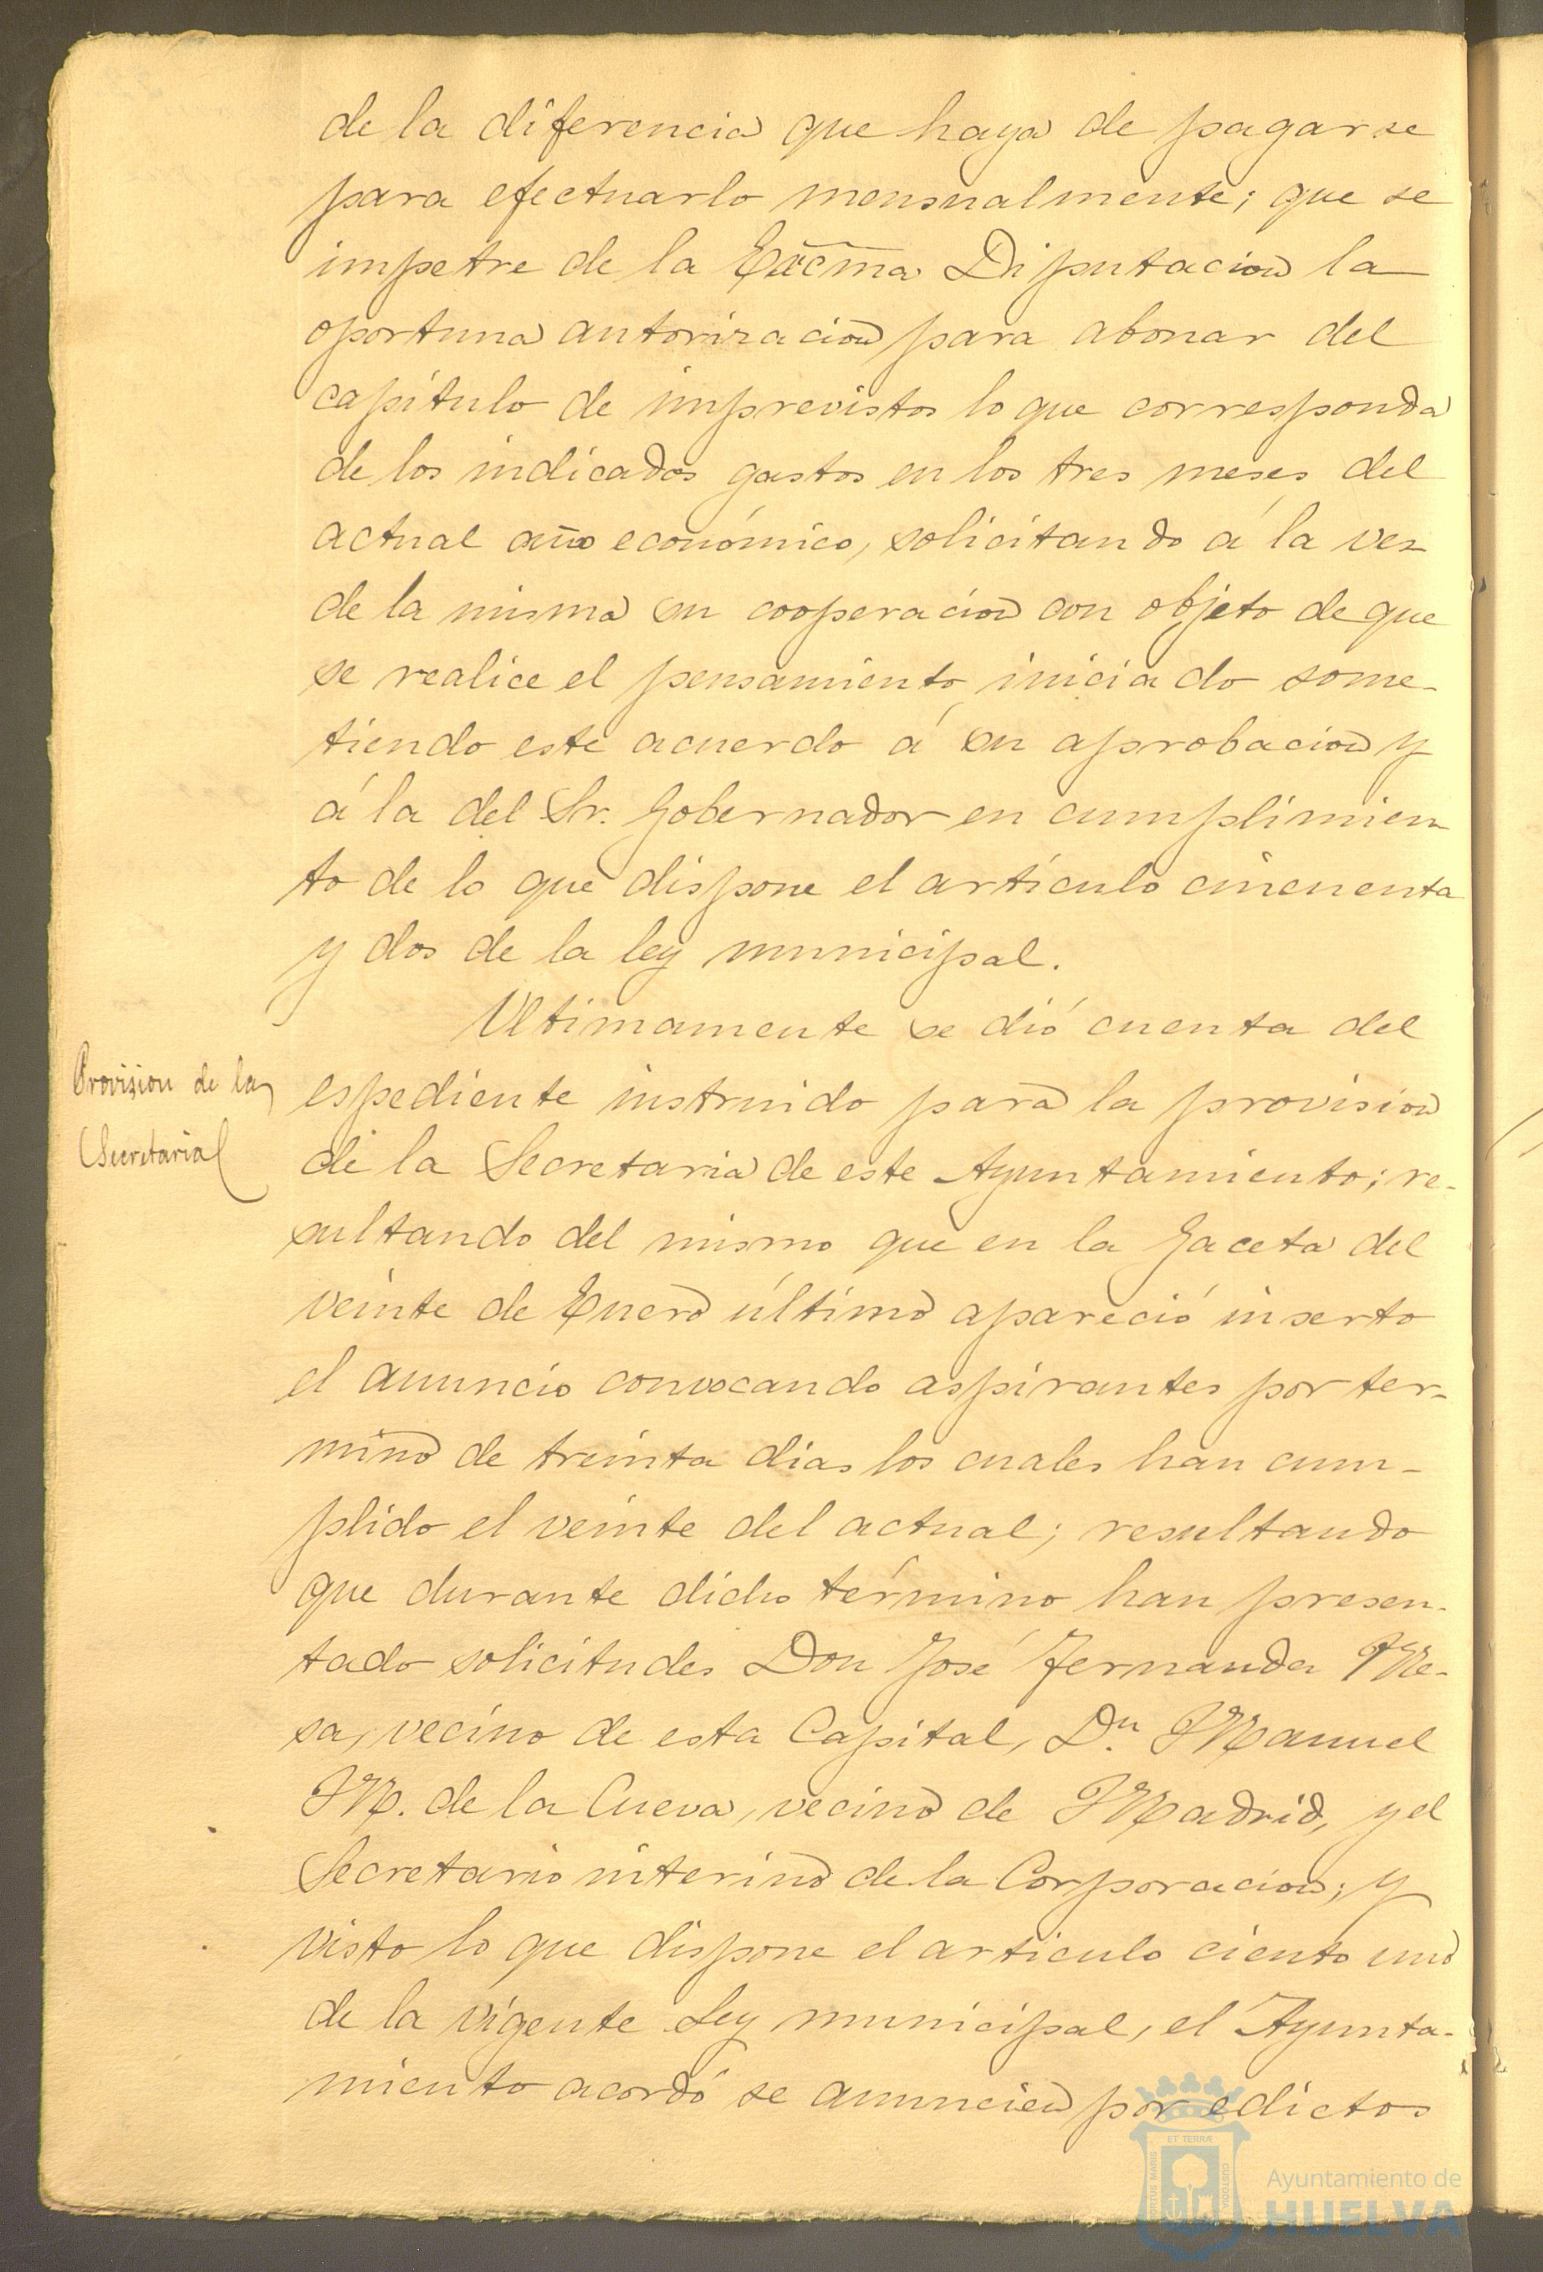 de la diferencia que haya de pagarse
para efectuarlo mensualmente; que se
impetre de la Excma Diputacion la
oportuna autorizacion para abonar del
capítulo de imprevistos lo que corresponda
de los indicados gastos en los tres meses del
actual año económico, solicitando á la vez
de la misma su cooperacion con objeto de que
se realice el pensamiento iniciado some-
tiendo este acuerdo á su aprobacion y
á la del Sr. Gobernador en cumplimien
to de lo que dispone el artículo cincuenta
y dos de la ley municipal.
Ultimamente se dió cuenta del
Provision de la
Secretaria
espediente instruido para la provision
de la Secretaria de este Ayuntamiento; re-
sultando del mismo que en la Gaceta del
veinte de Enero último apareció inserto
el anuncio convocando aspirantes por ter-
mino de treinta dias los cuales han cum-
plido el veinte del actual; resultando
que durante dicho término han presen-
tado solicitudes Don José Fernandez Me-
sa, vecino de esta Capital, Dn. Manuel
M. de la Cueva, vecino de Madrid, y el
Secretario interino de la Corporacion; y
visto lo que dispone el articulo ciento uno
de la vigente Ley municipal, el Ayunta-
miento acordó se anuncien por edictos
ET TERRÆ
PORTUS MARIS
CUSTODIA
Ayuntamiento de
HUELVA